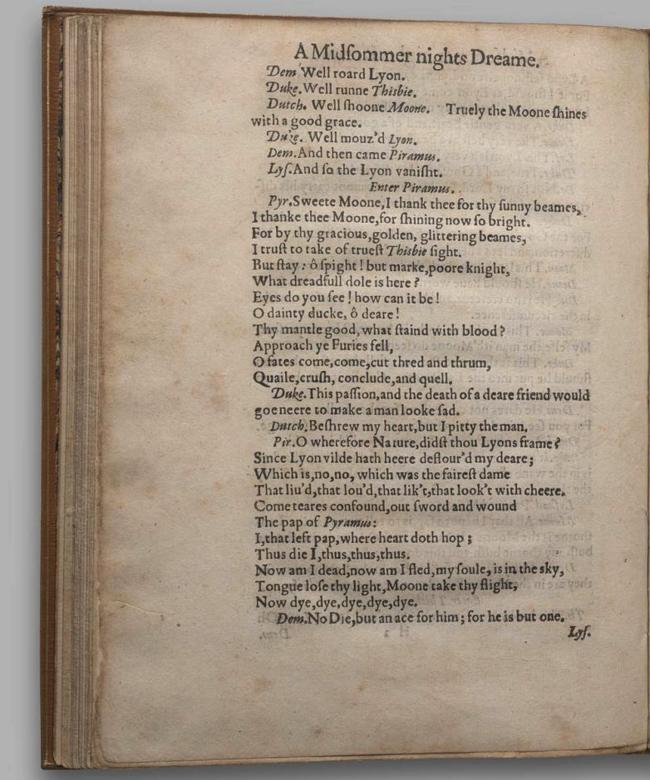 A Midſommer nights Dreame.
Dem Well roard Lyon.
Duke. Well runne Thisbie.
Dutch. Well ſhoone Moone. Truely the Moone ſhines
with a good grace.
Duke. Well mouz'd Lyon.
Dem. And then came Piramus.
Lyſ. And ſo the Lyon vaniſht.
Enter Piramus.
Pyr. Sweete Moone, I thank thee for thy ſunny beames,
I thanke thee Moone, for ſhining now ſo bright.
For by thy gracious, golden, glittering beames,
I truſt to take of trueſt Thisbie ſight.
But ſtay : ô ſpight ! but marke, poore knight,
What dreadfull dole is here ?
Eyes do you ſee ! how can it be !
O dainty ducke, ô deare !
Thy mantle good, what ſtaind with blood ?
Approach ye Furies fell,
O fates come, come, cut thred and thrum,
Quaile, cruſh, conclude, and quell.
Duke. This paſſion, and the death of a deare friend would
go neere to make a man looke ſad.
Dutch. Beſhrew my heart, but I pitty the man.
Pir. O wherefore Nature, didſt thou Lyons frame ?
Since Lyon vilde hath heere deflour'd my deare ;
Which is, no, no, which was the faireſt dame
That liu'd, that lou'd, that lik't, that look't with cheere.
Come teares confound, out ſword and wound
The pap of Pyramus :
I, that left pap, where heart doth hop ;
Thus die I, thus, thus, thus.
Now am I dead, now am I fled, my ſoule, is in the sky,
Tongue loſe thy light, Moone take thy flight,
Now dye, dye, dye, dye, dye.
Dem. No Die, but an ace for him ; for he is but one.
Lyſ.